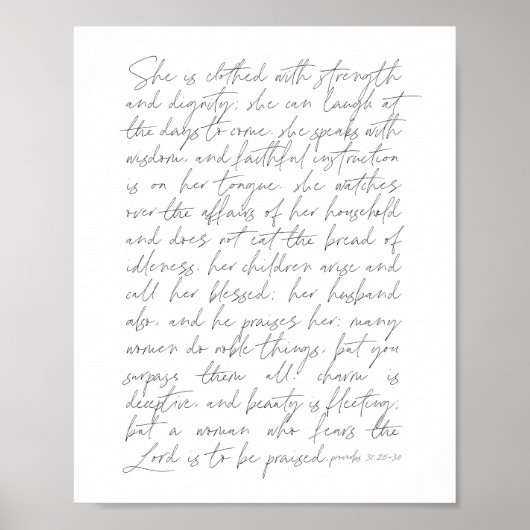 She is clothed with strength
and dignity; she can laugh at
the days to come. she speaks with
wisdom, and faithful instruction
is on her tongue. she watches
over the affairs of her household
and does not eat the bread of
idleness. her children arise and
call her blessed; her husband
also, and he praises her: many
women do noble things, but you
surpass them all. charm is
deceptive, and beauty is fleeting;
but a woman who fears the
Lord is to be praised. proverbs 31:25-30